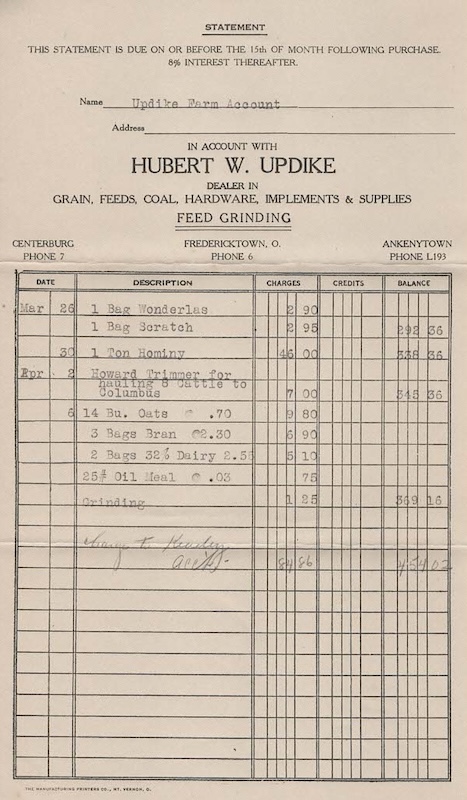 STATEMENT
THIS STATEMENT IS DUE ON OR BEFORE THE 15th OF MONTH FOLLOWING PURCHASE.
8% INTEREST THEREAFTER.
Name Updike Farm Account
Address
IN ACCOUNT WITH
HUBERT W. UPDIKE
DEALER IN
GRAIN, FEEDS, COAL, HARDWARE, IMPLEMENTS & SUPPLIES
FEED GRINDING
CENTERBURG FREDERICKTOWN, O. ANKENYTOWN
PHONE 7 PHONE 6 PHONE L193
DATE DESCRIPTION CHARGES CREDITS BALANCE
Mar 26 1 Bag Wonderlas 2 90
1 Bag Scratch 2 95 292 36
30 1 Ton Hominy 46 00 338 36
Apr 2 Howard Trimmer for
hauling 8 Cattle to
Columbus 7 00 345 36
6 14 Bu. Oats @ .70 9 80
3 Bags Bran @2.30 6 90
2 Bags 32% Dairy 2.55 5 10
25# Oil Meal @ .03 75
Grinding 1 25 369 16
to
acc't - 84 86 454 02
THE MANUFACTURING PRINTERS CO., MT. VERNON, O.